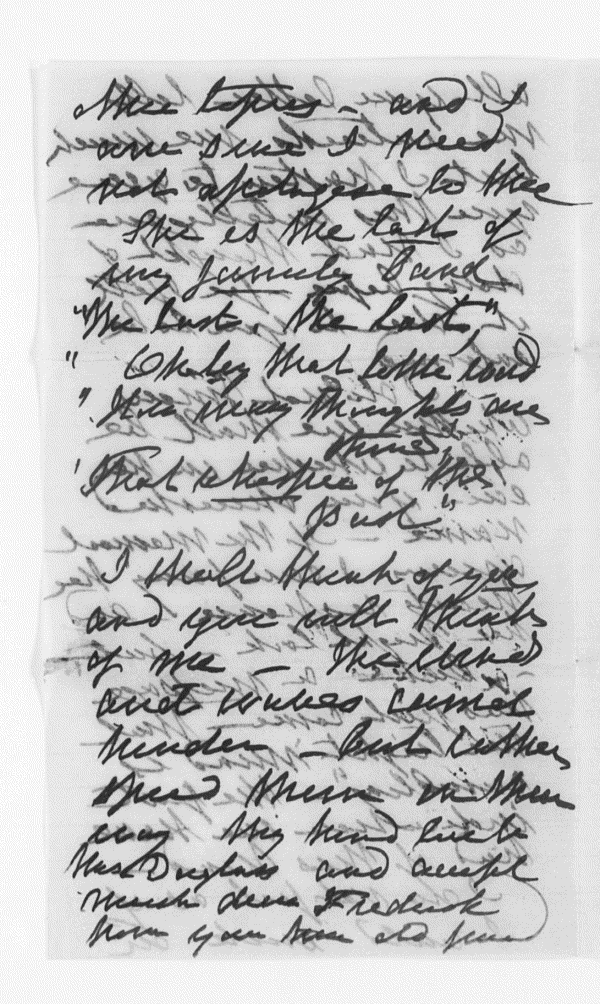 and I
am sure I need
not apologise to thee
She is the last of
my family band
"The last, the last,"
" Oh by that little word
" How many thoughts are
stirred,
'That whisper of the
past"
I shall think of you
and you will think
of me — The winds
and waves cannot
hinder — but rather
speed them on their
way
Mrs Douglass and accept
much dear Frederick
from your true old friend